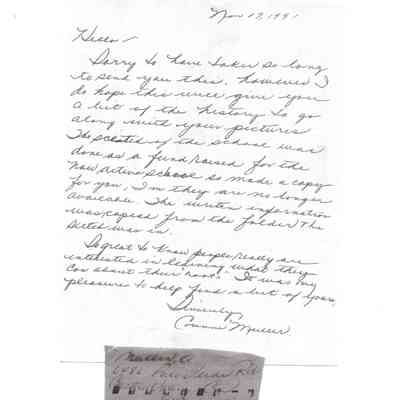 Nov 17, 1991
Helen -
Sorry to have taken so long
to send you this. However I
do hope this will give you
a bit of the history to go
along with your pictures
The of the school was
done as a fund raiser for the
school so made a copy
for you, I'm they are no longer
available. The written information
was copied from the folder the
was in.
So great to know people really are
interested in learning what they
can about their roots. It was my
pleasure to help find a bit of yours.
Sincerely
Connie Mueller
Rd